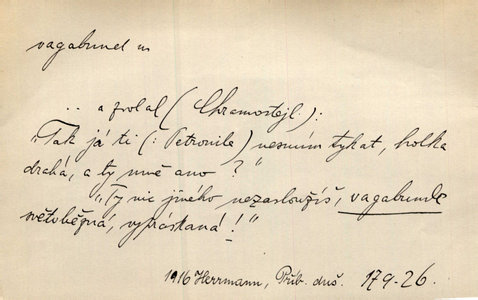 vagabund m
.. a zvolal (Chramostejl):
"Tak já ti (: Petronile) nesmím tykat, holka
drahá, a ty mně ano?"
"Ty nic jiného nezasloužíš, vagabunde
světoběžná, vypráskaná!"
1916 Herrmann, Příb. duš. 179-26.